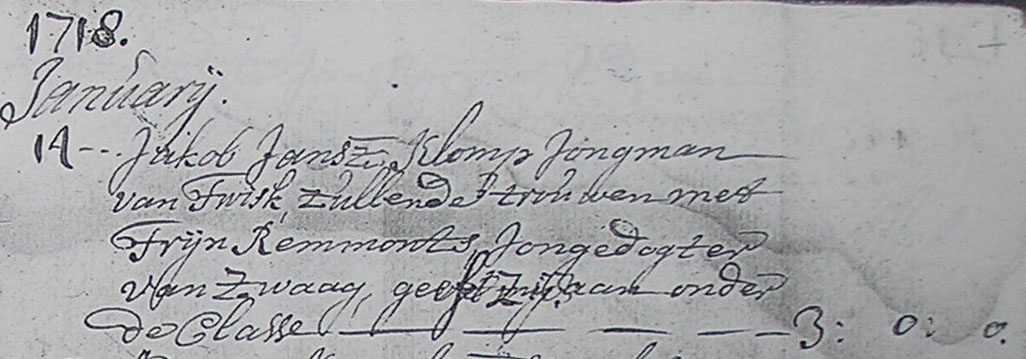 1718.
Januarij.
14-- Jakob Jansz. Klomp Jongman
van Twisk, zullende trouwen met
Trijn Remmonts, Jongedogter
van Zwaag, geeft zig aan onder
de Classe — — — — 3: 0: 0.